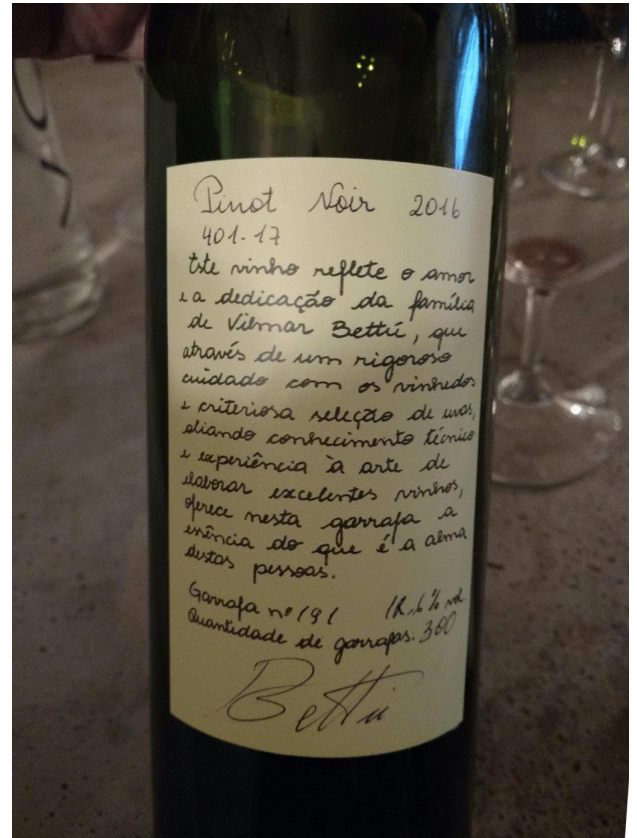 Pinot Noir 2016
401-17
Este vinho reflete o amor
e a dedicação da família
de Vilmar Bettú, que
através de um rigoroso
cuidado com os vinhedos
e criteriosa seleção de uvas,
aliando conhecimento técnico
e experiência à arte de
elaborar excelentes vinhos,
oferece nesta garrafa a
essência do que é a alma
destas pessoas.
Garrafa nº 191 12,6% vol
Quantidade de garrafas: 300
Bettú